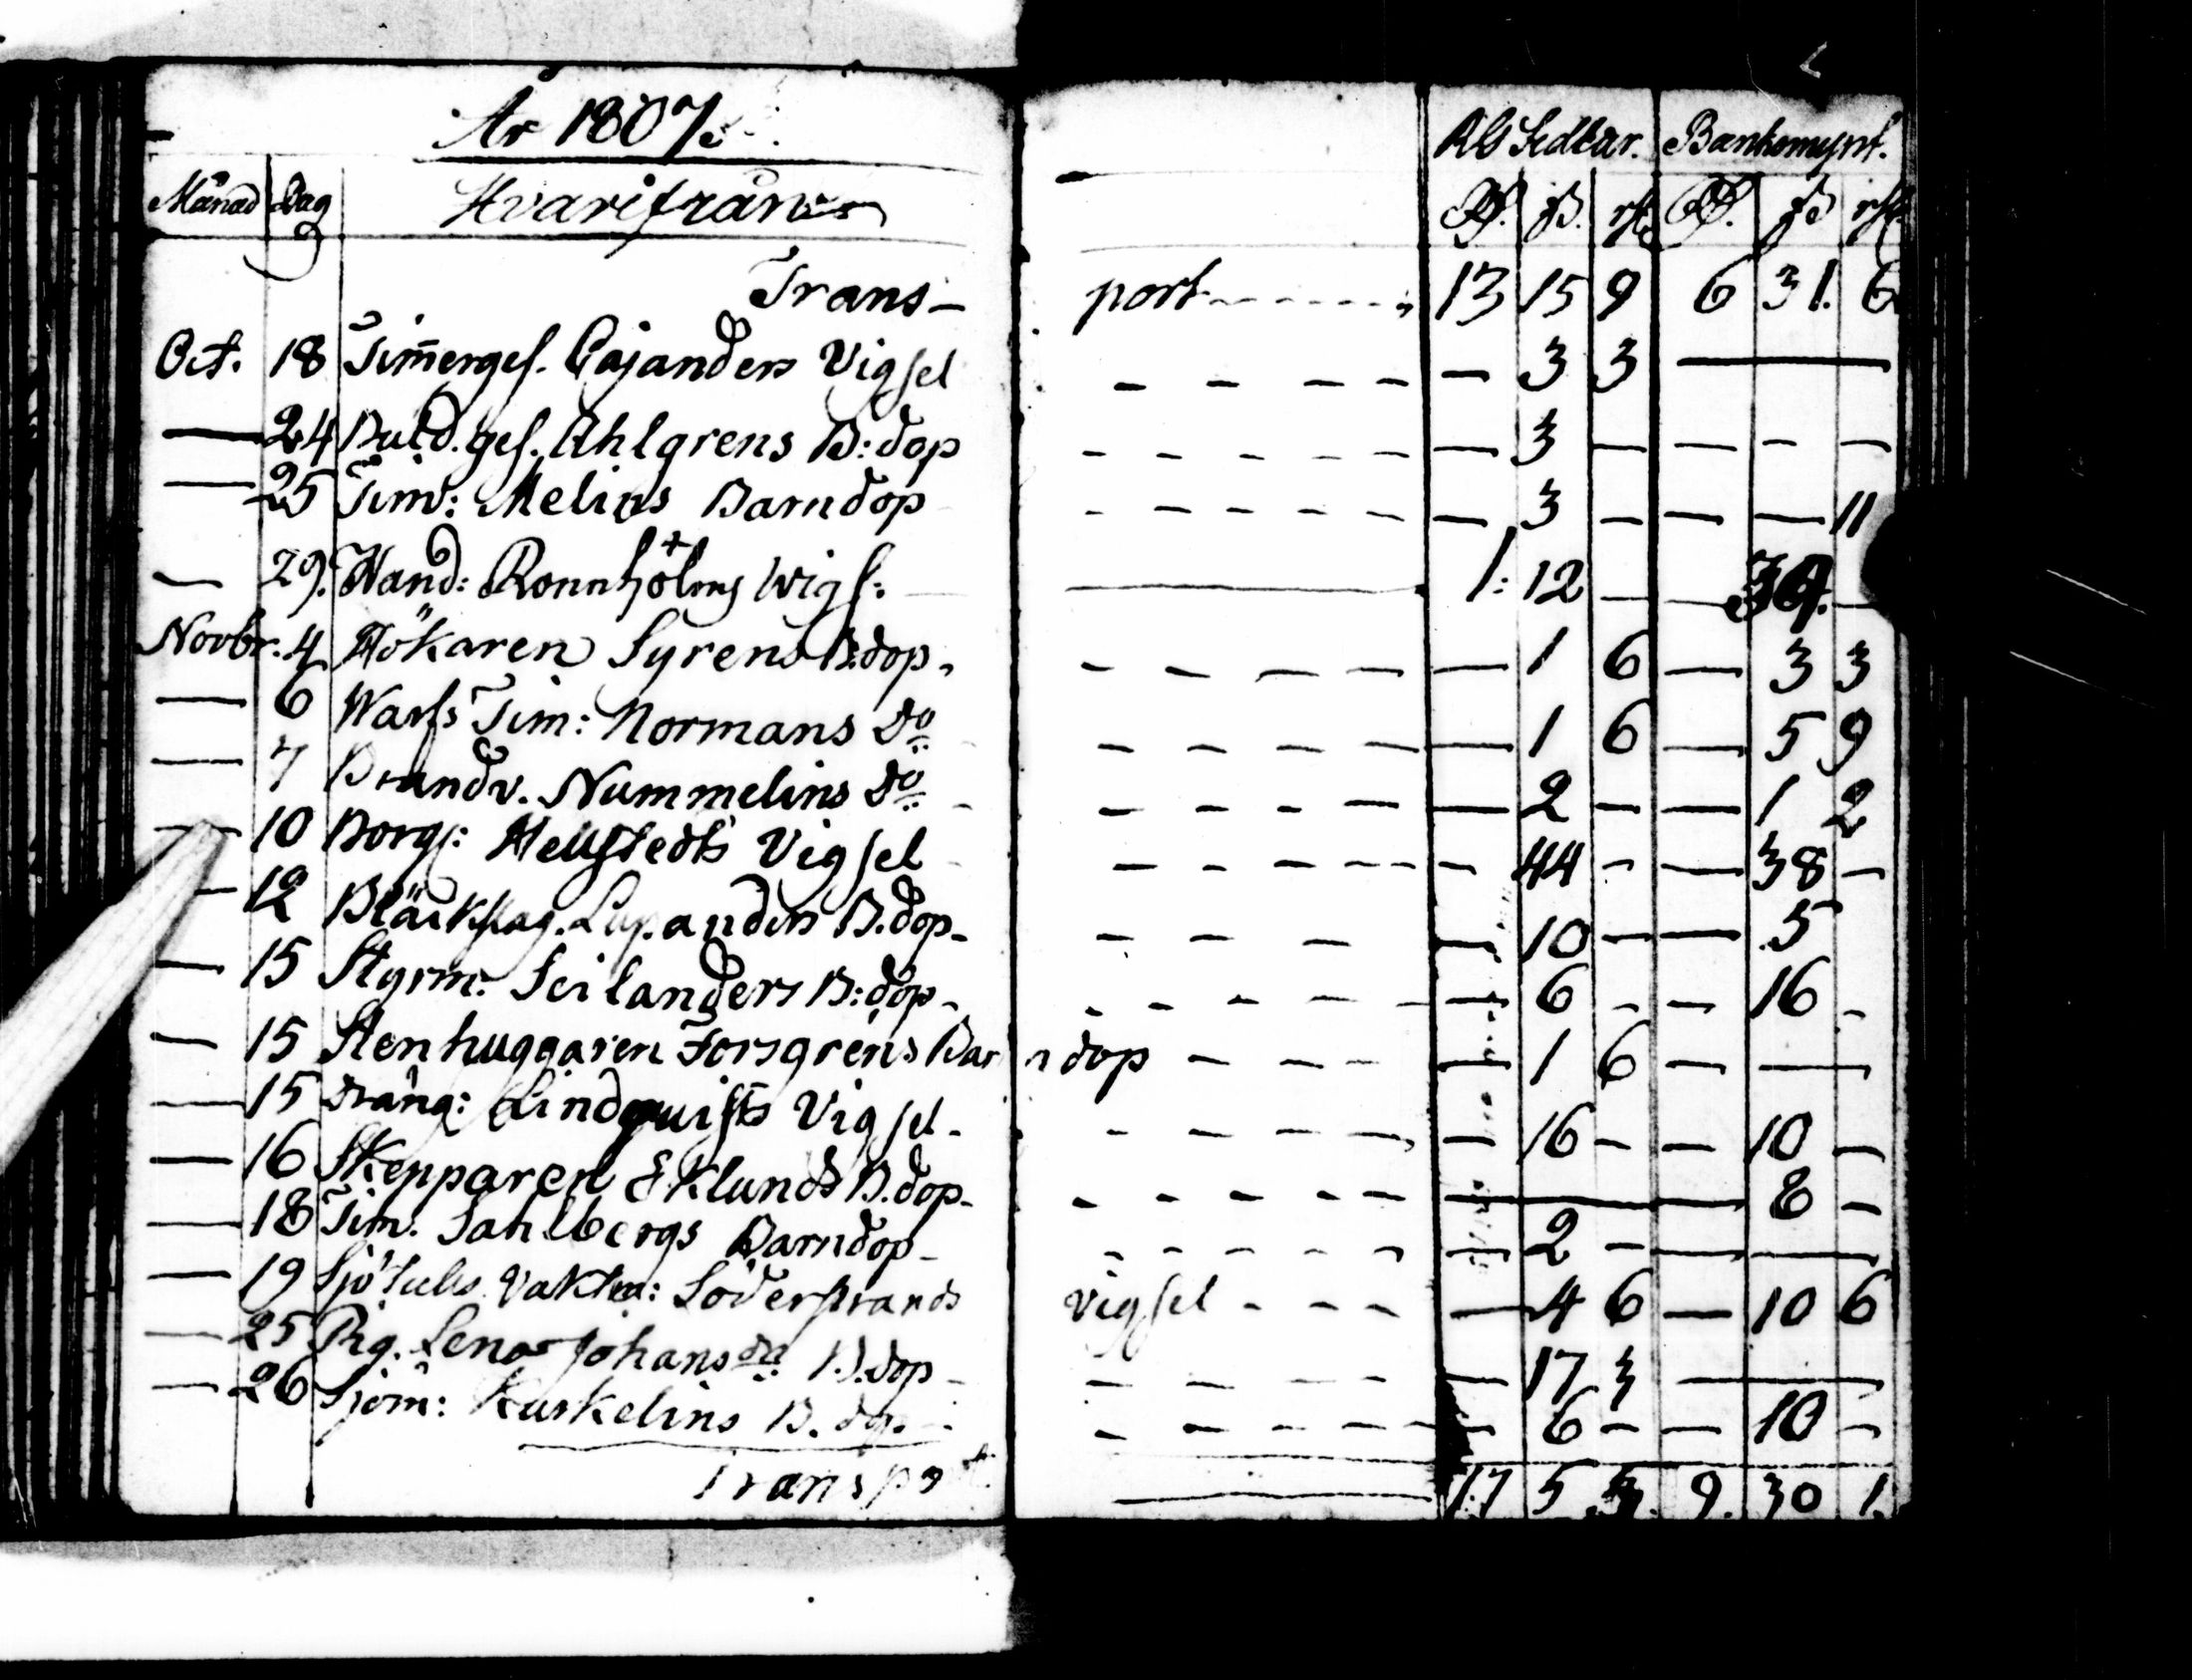 År 1807.
RG Sedlar. Bankomynt.
Månad Dag Hvarifrån
Rd. ß. rst. Rd. ß rst.
Transport 13 15 9 6 31. 6
Oct. 18 Timergs. Cajanders Vigsel — 3 3 —
— 24 Guld.ges. Ahlgrens B:dop — 3 — — — —
— 25 Tim: Melins Barndop — 3 — — — 11
— 29. Hand: Rönnholms Wigs: 1: 12 — — 39. —
Novbr. 4 Hökaren Syrens B:dop. — 1 6 — 3 3
— 6 Warfs Tim: Normans Do — 1 6 — 5 9
— 7 Brandv. Nummelins Do — 2 — — 1 2
— 10 Borgs: Hellstedts Vigsel — 44 — — 38 —
— 12 Bläckslag. Lupanders B.dop — 10 — — 5
— 15 Styrm: Seilanders B:dop — 6 — — 16 —
— 15 Stenhuggaren Forsgrens Barndop — 1 6 — —
— 15 Dräng: Lindquists Vigsel — 16 — — 10 —
— 16 Skepparen Eklunds B.dop — 8 —
— 18 Tim. Sahlbergs Barndop — 2 — — —
— 19 Sjötulls Vaktm: Söderstrands vigsel — 4 6 — 10 6
— 25 Pig. Lena Johans da B.dop — 17 3 —
— 26 Sjöm: Kuskelins B. dop — 6 — — 10 —
Transport 17 5 3. 9. 30 1.